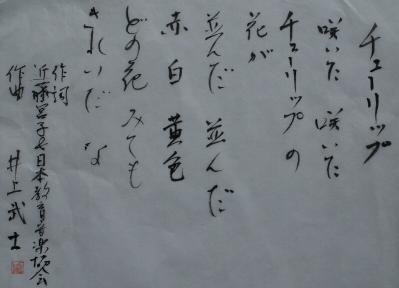 チューリップ
咲いた 咲いた
チューリップの
花が
並んだ 並んだ
赤 白 黄色
どの花 みても
きれいだな
作詞
近藤宮子や日本教育音楽協会
作曲 井上武士